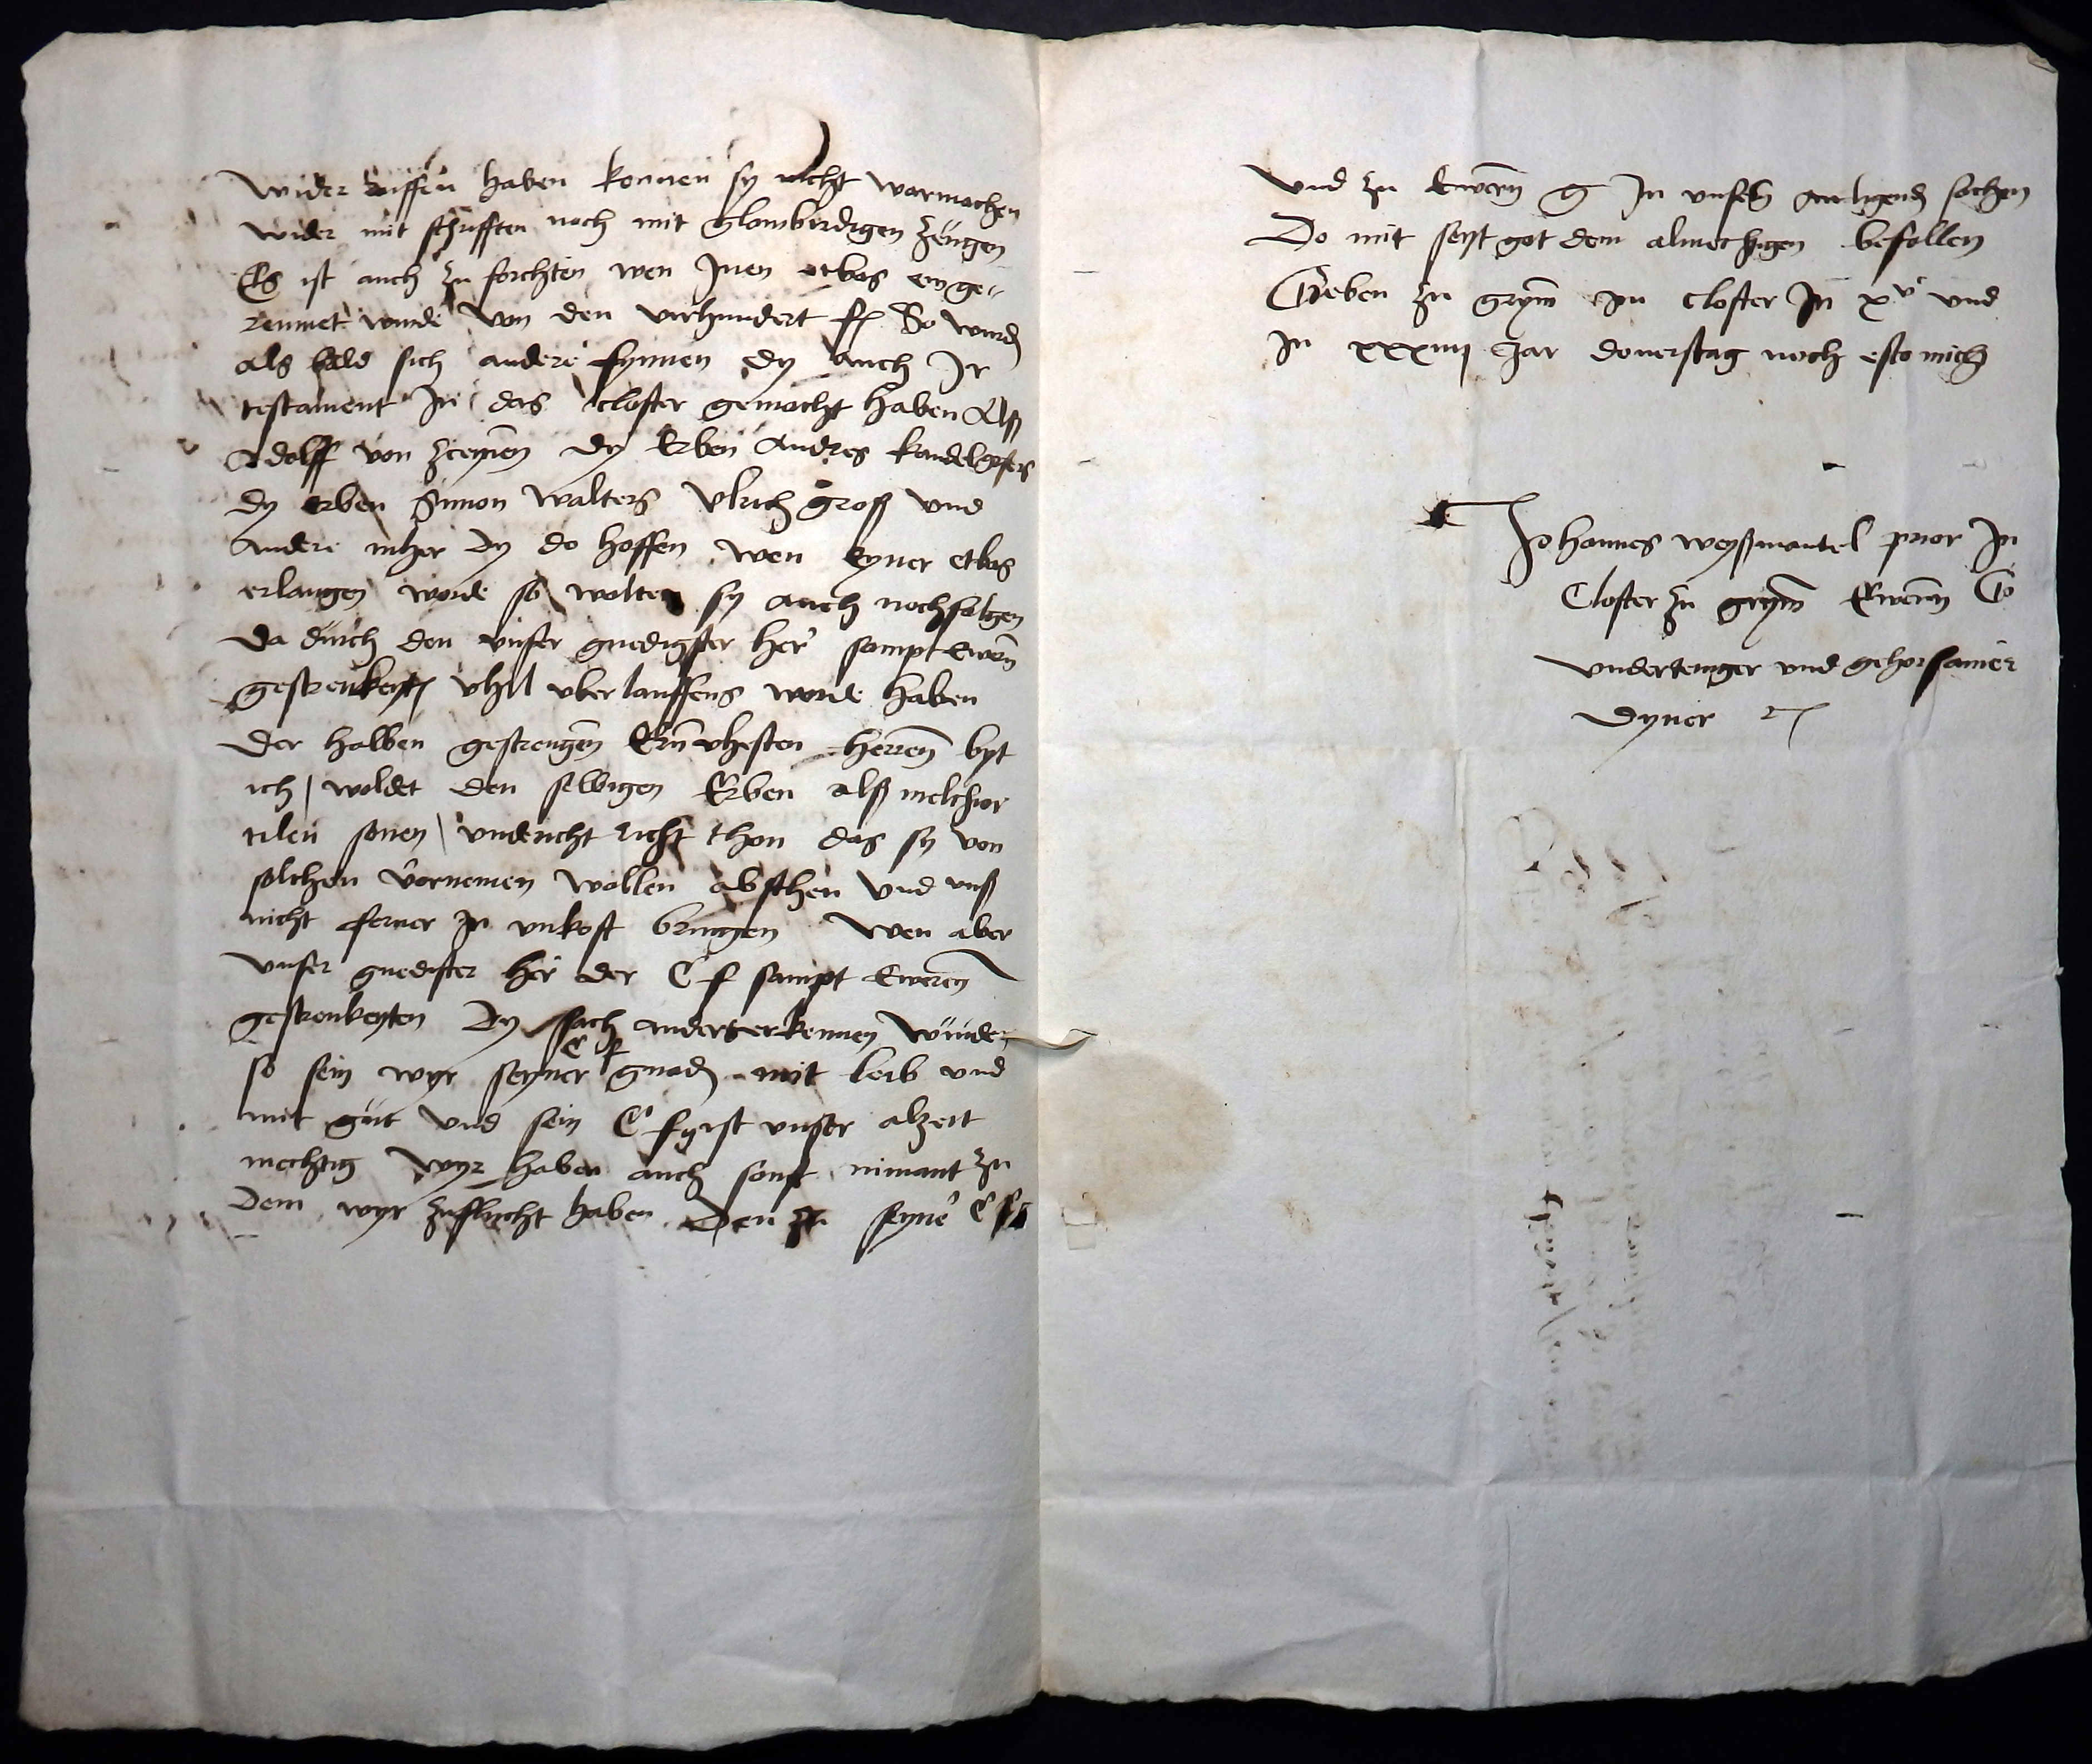 wider ruffen haben konnen sy nicht warmachen
wider mit schrifften noch mit glombirdigen zeugen
Es ist auch zu forchten wen Inen etbas einge-
reumet wurde von den virhundert fl So wurd
als bald sich andere fynnen dy auch Ir
testament In das closter gemacht haben Alß
Adolff von dy Erben Andres kandelgisers
dy erben Simon walters Ulrich groß und
andere mher dy do hoffen wen eyner etbas
erlangen worde so wolten sy auch nochfolgen
da durch den unser gnedigster her sampt ewern
gestrenkeyt vhil uberlauffens worde haben
der halben gestrengen Ernvhesten herren byt
ich woldet den selbigen Erben alß melchior
tilen sonen undericht thon das sy von
solchen vornemen wollen absthen und unß
nicht ferner in unkost bringen wen aber
unser gnedister her der C f sampt Eweren
gestrenkeyten dy sach anders erkennen wurde
so sein wyr seyner C f gnad mit leib und
mit gut und sein C fyrst unser alzeit
mechtig wyr haben auch sonst nimant zu
dem wyr zuflucht haben den zu seyne C f
und zu Ewern g In unsern anligend sachen
Do mit seyt got dem almechigen befollen
Geben zu grym im closter In xv und
In xxxiiii Jar donerstag noch esto michi
Johannes weyßmantel prior In
Closter zu grym Eweren G
underteniger und gehorsamer
dyner